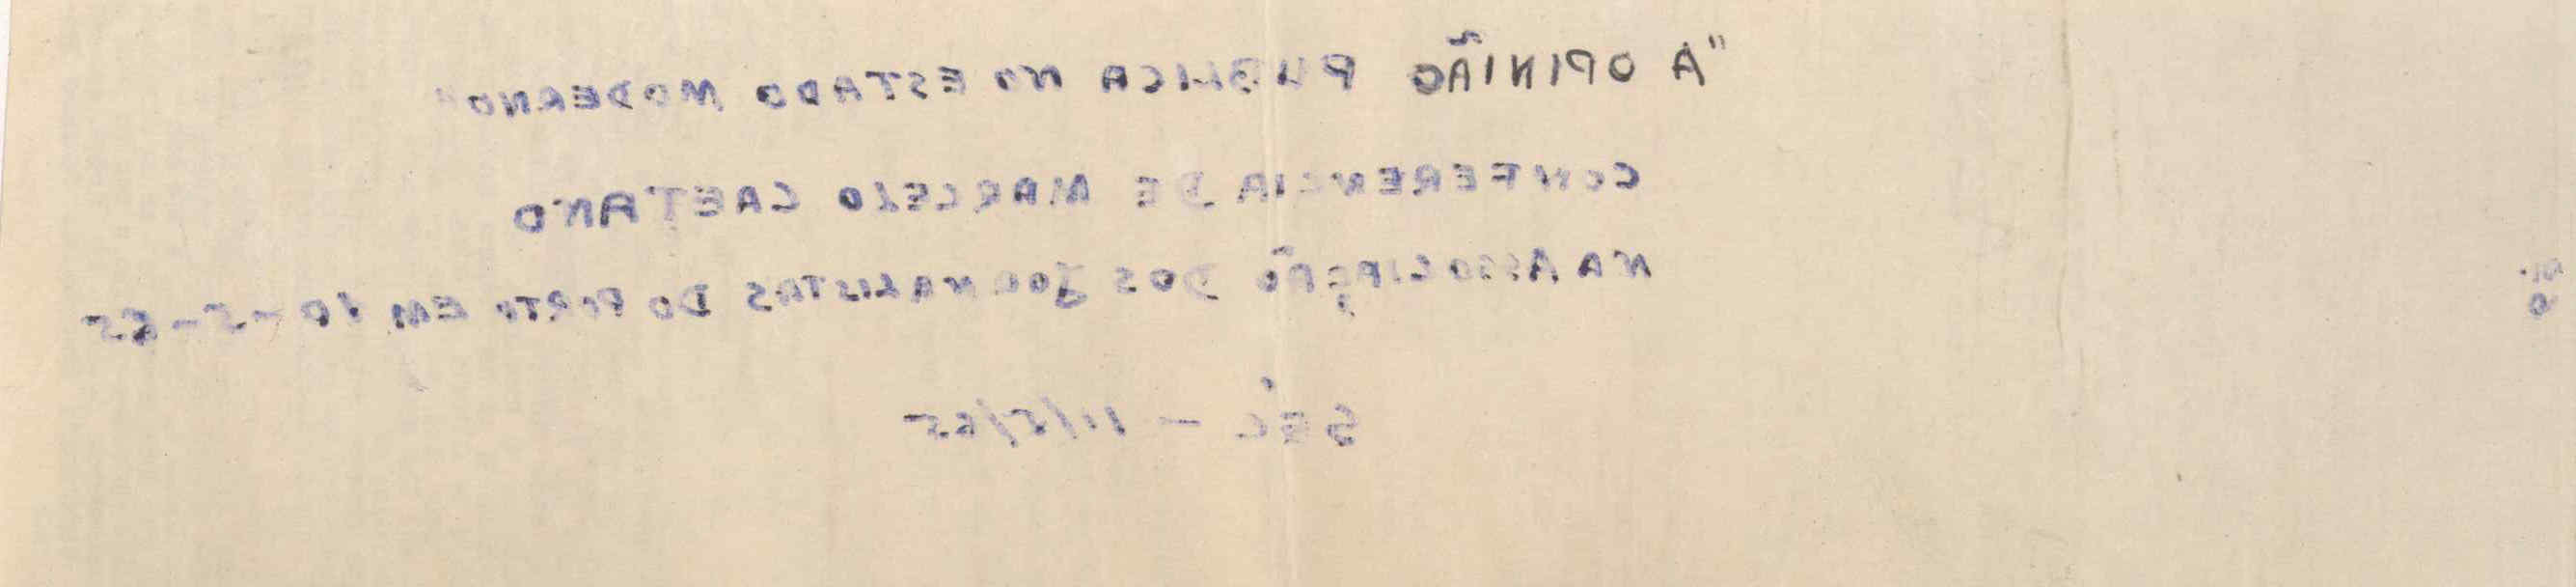 "A OPINIÃO PUBLICA NO ESTADO MODERNO"
CONFERENCIA DE MARCELO CAETANO
NA ASSOCIAÇÃO DOS JORNALISTAS DO PORTO EM 10-5-65
SEC - 11/5/65